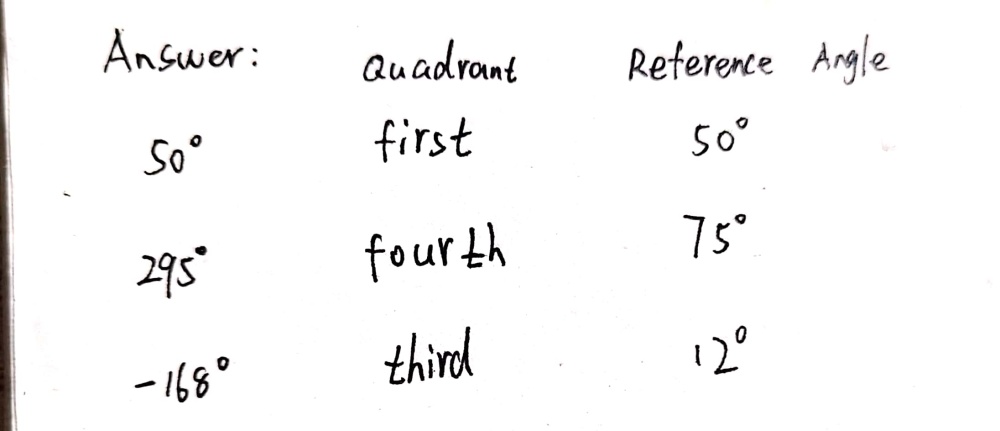 Answer: Quadrant Reference Angle
50° first 50°
295° fourth 75°
-168° third 12°